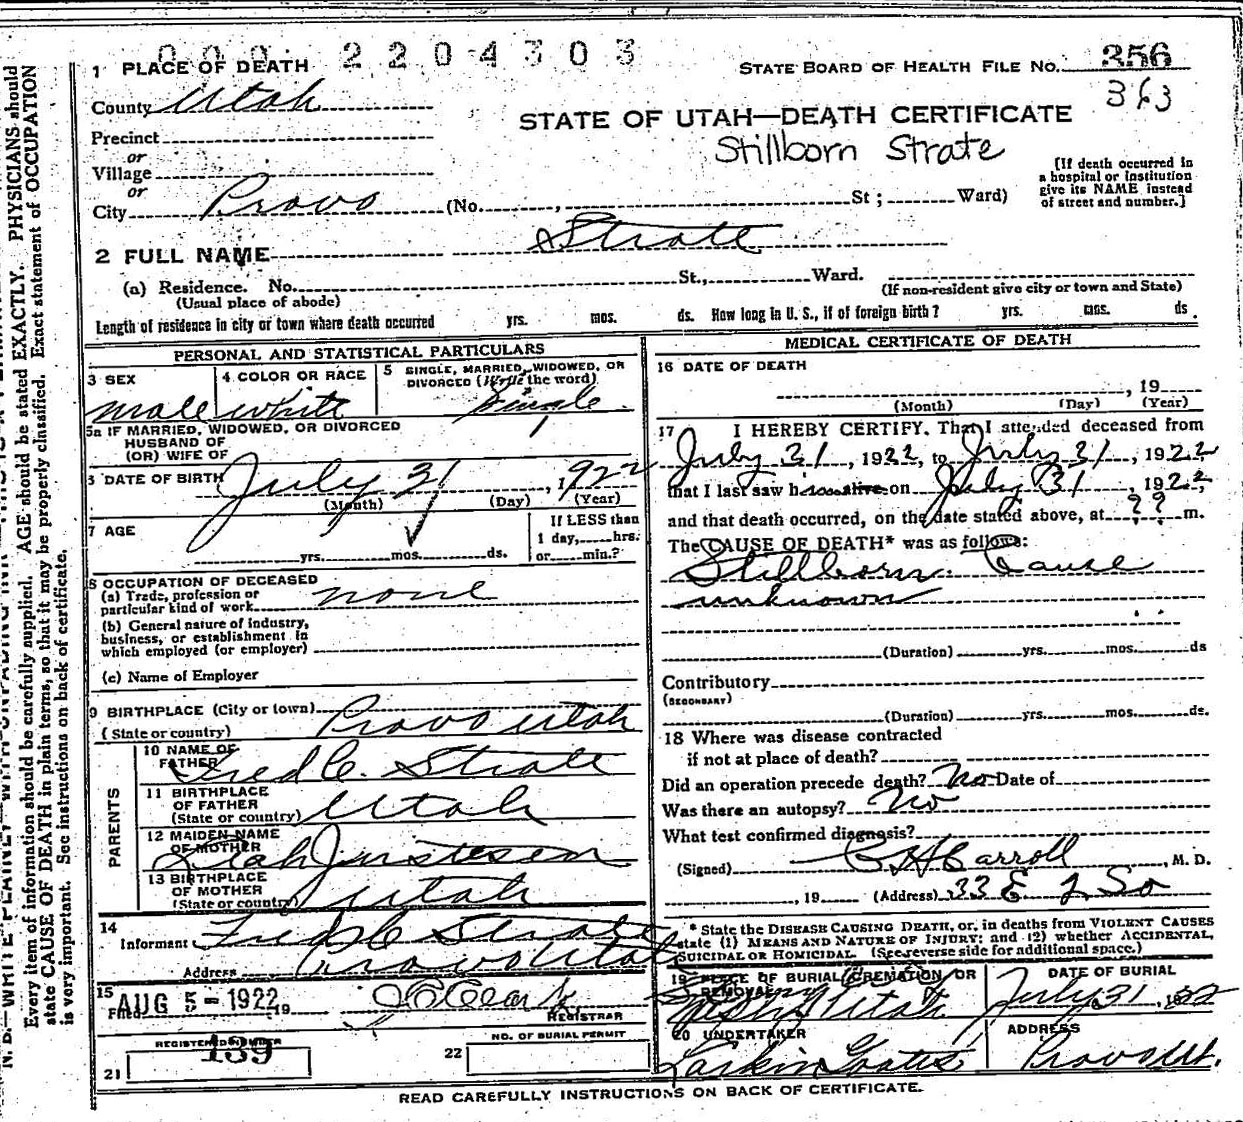 000 2204303
1 PLACE OF DEATH
STATE BOARD OF HEALTH FILE NO. 356
363
County Utah
STATE OF UTAH—DEATH CERTIFICATE
Stillborn Strate
Precinct
or
Village
or
City Provo (No. , St ; Ward)
(If death occurred in
a hospital or institution
give its NAME instead
of street and number.)
2 FULL NAME Strate
(a) Residence. No. St., Ward.
(Usual place of abode)
(If non-resident give city or town and State)
Length of residence in city or town where death occurred yrs. mos. ds. How long in U. S., if of foreign birth? yrs. mos. ds.
PERSONAL AND STATISTICAL PARTICULARS
3 SEX
male
4 COLOR OR RACE
white
5 SINGLE, MARRIED, WIDOWED, OR
DIVORCED (Write the word)
Single
5a IF MARRIED, WIDOWED, OR DIVORCED
HUSBAND OF
(OR) WIFE OF
6 DATE OF BIRTH July 31, 1922
(Month) (Day) (Year)
7 AGE
yrs. mos. ds.
If LESS than
1 day, hrs.
or min.?
8 OCCUPATION OF DECEASED
(a) Trade, profession or
particular kind of work none
(b) General nature of industry,
business, or establishment in
which employed (or employer)
(c) Name of Employer
9 BIRTHPLACE (City or town) Provo Utah
(State or country)
PARENTS
10 NAME OF
FATHER Fred C. Strate
11 BIRTHPLACE
OF FATHER
(State or country) Utah
12 MAIDEN NAME
OF MOTHER Leah Justesen
13 BIRTHPLACE
OF MOTHER
(State or country) Utah
14
Informant Fred C Strate
Address Provo Utah
15
Filed AUG 5 - 1922 19
REGISTRAR
REGISTERED NUMBER
21 139
22 NO. OF BURIAL PERMIT
MEDICAL CERTIFICATE OF DEATH
16 DATE OF DEATH
, 19
(Month) (Day) (Year)
17 I HEREBY CERTIFY, That I attended deceased from
July 31, 1922, to July 31, 1922
that I last saw h alive on July 31, 1922,
and that death occurred, on the date stated above, at ?? m.
The CAUSE OF DEATH* was as follows:
Stillborn. Cause
unknown
(Duration) yrs. mos. ds
Contributory
(SECONDARY)
(Duration) yrs. mos. ds.
18 Where was disease contracted
if not at place of death?
Did an operation precede death? No Date of
Was there an autopsy? No
What test confirmed diagnosis?
(Signed) Carroll, M. D.
, 19 (Address) 33 E 2 So
* State the DISEASE CAUSING DEATH, or, in deaths from VIOLENT CAUSES
state (1) MEANS AND NATURE OF INJURY; and (2) whether ACCIDENTAL,
SUICIDAL OR HOMICIDAL. (See reverse side for additional space.)
19 PLACE OF BURIAL, CREMATION, OR
REMOVAL
Utah
DATE OF BURIAL
July 31, 1922
20 UNDERTAKER
Larkin
ADDRESS
Provo Ut.
READ CAREFULLY INSTRUCTIONS ON BACK OF CERTIFICATE.
Every item of information should be carefully supplied. AGE should be stated EXACTLY. PHYSICIANS should
state CAUSE OF DEATH in plain terms, so that it may be properly classified. Exact statement of OCCUPATION
is very important. See instructions on back of certificate.